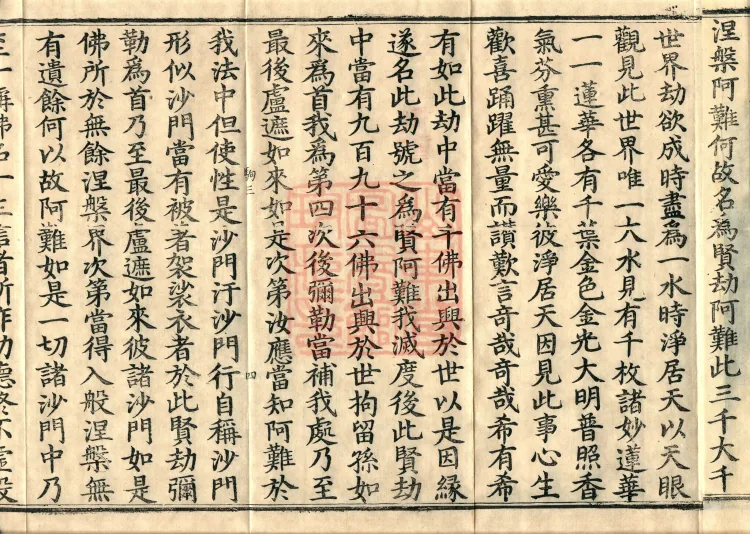 涅槃阿難何故名為賢劫阿難此三千大千
世界劫欲成時盡為一水時淨居天以天眼
觀見此世界唯一大水見有千枚諸妙蓮華
一一蓮華各有千葉金色金光大明普照香
氣芬熏甚可愛樂彼淨居天因見此事心生
歡喜踊躍無量而讚歎言奇哉奇哉希有希
有如此劫中當有千佛出興於世以是因緣
遂名此劫號之為賢阿難我滅度後此賢劫
中當有九百九十六佛出興於世拘留孫如
來為首我為第四次後彌勒當補我處乃至
最後盧遮如來如是次第汝應當知阿難於
駒三
四
我法中但使性是沙門汙沙門行自稱沙門
形似沙門當有被著袈裟衣者於此賢劫彌
勒為首乃至最後盧遮如來彼諸沙門如是
佛所於無餘涅槃界次第當得入般涅槃無
有遺餘何以故阿難如是一切諸沙門中乃
至一稱佛名一生信者所作功德終不虛設